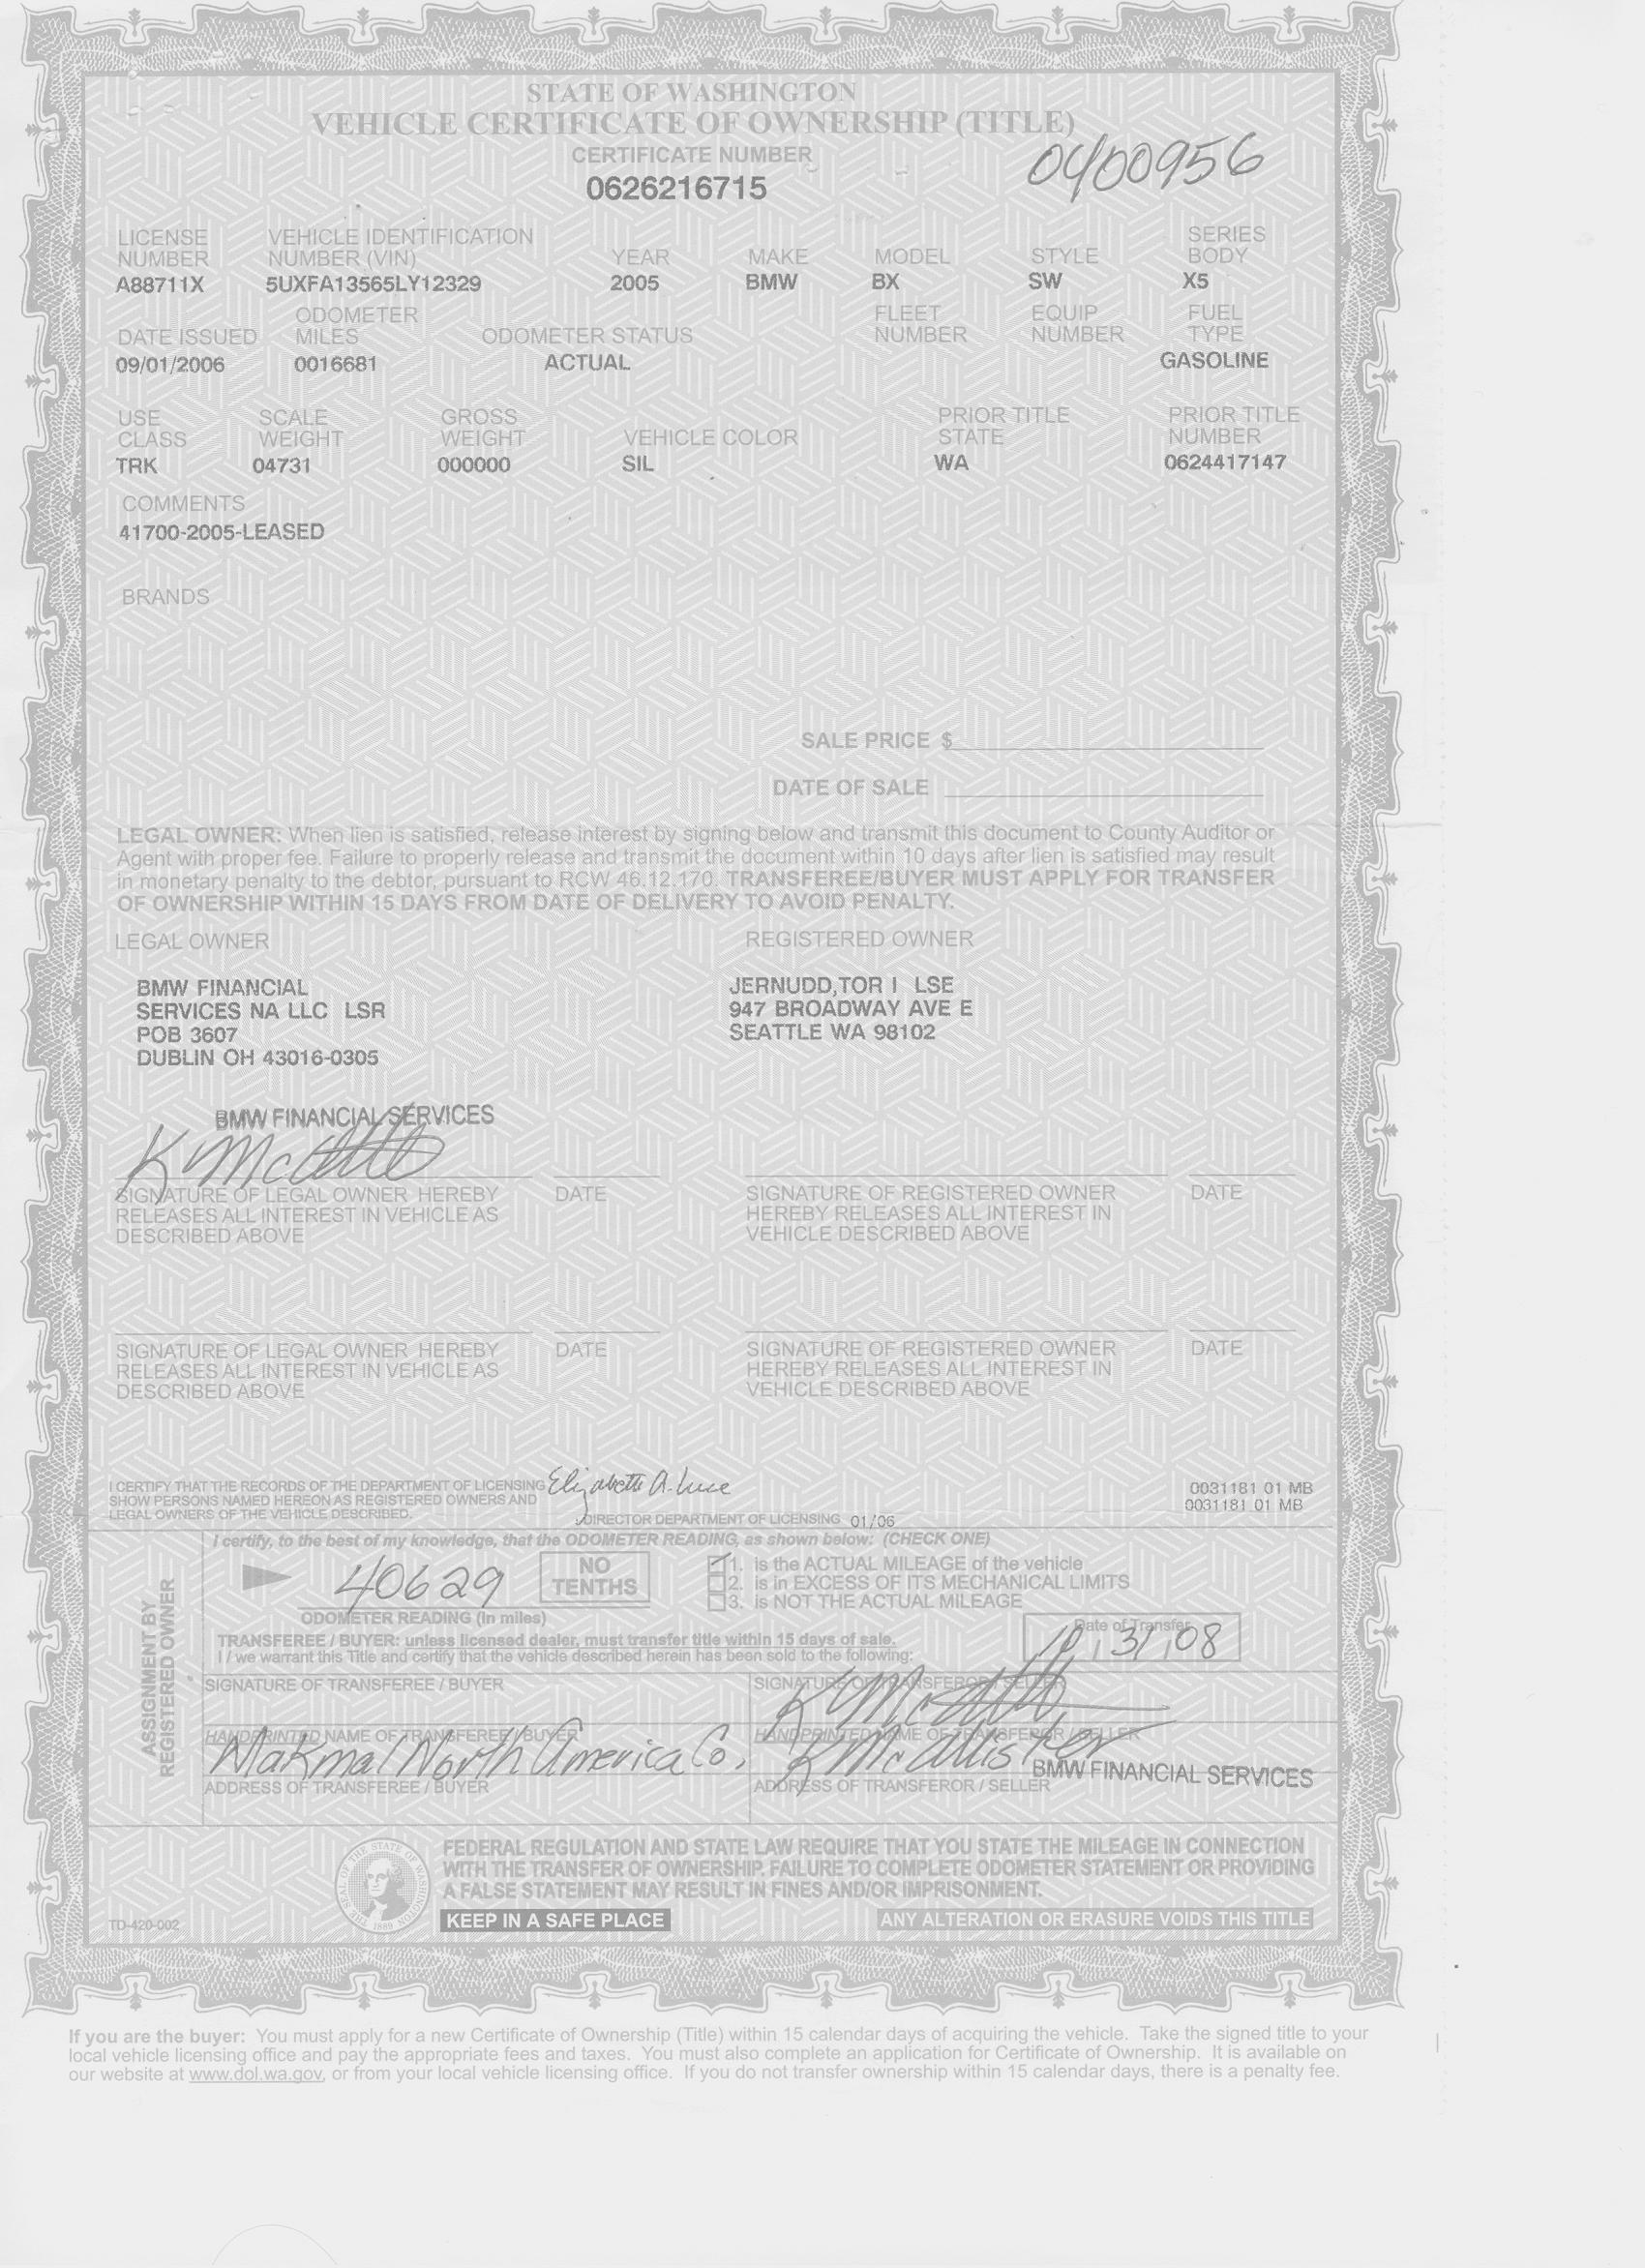 STATE OF WASHINGTON
VEHICLE CERTIFICATE OF OWNERSHIP (TITLE)
CERTIFICATE NUMBER
0626216715
0400956
LICENSE NUMBER
A88711X
VEHICLE IDENTIFICATION NUMBER (VIN)
5UXFA13565LY12329
YEAR
2005
MAKE
BMW
MODEL
BX
STYLE
SW
SERIES BODY
X5
DATE ISSUED
09/01/2006
ODOMETER MILES
0016681
ODOMETER STATUS
ACTUAL
FLEET NUMBER
EQUIP NUMBER
FUEL TYPE
GASOLINE
USE CLASS
TRK
SCALE WEIGHT
04731
GROSS WEIGHT
000000
VEHICLE COLOR
SIL
PRIOR TITLE STATE
WA
PRIOR TITLE NUMBER
0624417147
COMMENTS
41700-2005-LEASED
BRANDS
SALE PRICE $
DATE OF SALE
LEGAL OWNER: When lien is satisfied, release interest by signing below and transmit this document to County Auditor or
Agent with proper fee. Failure to properly release and transmit the document within 10 days after lien is satisfied may result
in monetary penalty to the debtor, pursuant to RCW 46.12.170. TRANSFEREE/BUYER MUST APPLY FOR TRANSFER
OF OWNERSHIP WITHIN 15 DAYS FROM DATE OF DELIVERY TO AVOID PENALTY.
LEGAL OWNER
BMW FINANCIAL
SERVICES NA LLC LSR
POB 3607
DUBLIN OH 43016-0305
REGISTERED OWNER
JERNUDD,TOR I LSE
947 BROADWAY AVE E
SEATTLE WA 98102
BMW FINANCIAL SERVICES
SIGNATURE OF LEGAL OWNER HEREBY
RELEASES ALL INTEREST IN VEHICLE AS
DESCRIBED ABOVE
DATE
SIGNATURE OF REGISTERED OWNER
HEREBY RELEASES ALL INTEREST IN
VEHICLE DESCRIBED ABOVE
DATE
SIGNATURE OF LEGAL OWNER HEREBY
RELEASES ALL INTEREST IN VEHICLE AS
DESCRIBED ABOVE
DATE
SIGNATURE OF REGISTERED OWNER
HEREBY RELEASES ALL INTEREST IN
VEHICLE DESCRIBED ABOVE
DATE
I CERTIFY THAT THE RECORDS OF THE DEPARTMENT OF LICENSING
SHOW PERSONS NAMED HEREON AS REGISTERED OWNERS AND
LEGAL OWNERS OF THE VEHICLE DESCRIBED.
Elizabeth A. Luce
DIRECTOR DEPARTMENT OF LICENSING 01/06
0031181 01 MB
0031181 01 MB
ASSIGNMENT BY
REGISTERED OWNER
I certify, to the best of my knowledge, that the ODOMETER READING, as shown below: (CHECK ONE)
40629
NO TENTHS
ODOMETER READING (in miles)
1. is the ACTUAL MILEAGE of the vehicle
2. is in EXCESS OF ITS MECHANICAL LIMITS
3. is NOT THE ACTUAL MILEAGE
TRANSFEREE / BUYER: unless licensed dealer, must transfer title within 15 days of sale.
I / we warrant this Title and certify that the vehicle described herein has been sold to the following:
Date of Transfer
10, 31, 08
SIGNATURE OF TRANSFEREE / BUYER
SIGNATURE OF TRANSFEROR / SELLER
HANDPRINTED NAME OF TRANSFEREE / BUYER
Makmal North America Co.
HANDPRINTED NAME OF TRANSFEROR / SELLER
K McAllister
BMW FINANCIAL SERVICES
ADDRESS OF TRANSFEREE / BUYER
ADDRESS OF TRANSFEROR / SELLER
THE SEAL OF THE STATE OF WASHINGTON
1889
FEDERAL REGULATION AND STATE LAW REQUIRE THAT YOU STATE THE MILEAGE IN CONNECTION
WITH THE TRANSFER OF OWNERSHIP. FAILURE TO COMPLETE ODOMETER STATEMENT OR PROVIDING
A FALSE STATEMENT MAY RESULT IN FINES AND/OR IMPRISONMENT.
TD-420-002
KEEP IN A SAFE PLACE
ANY ALTERATION OR ERASURE VOIDS THIS TITLE
If you are the buyer: You must apply for a new Certificate of Ownership (Title) within 15 calendar days of acquiring the vehicle. Take the signed title to your
local vehicle licensing office and pay the appropriate fees and taxes. You must also complete an application for Certificate of Ownership. It is available on
our website at www.dol.wa.gov, or from your local vehicle licensing office. If you do not transfer ownership within 15 calendar days, there is a penalty fee.